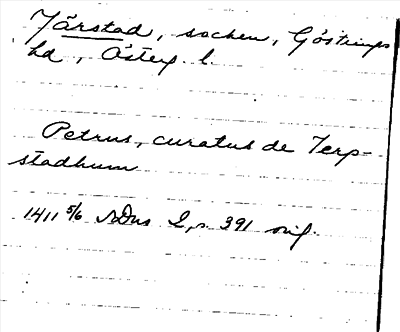 Järstad, socken, Göstrings
hd, Österg. l.
Petrus, curatus de Jerp-
stadhum
1411 5/6 SDns 2, s. 391 orig.